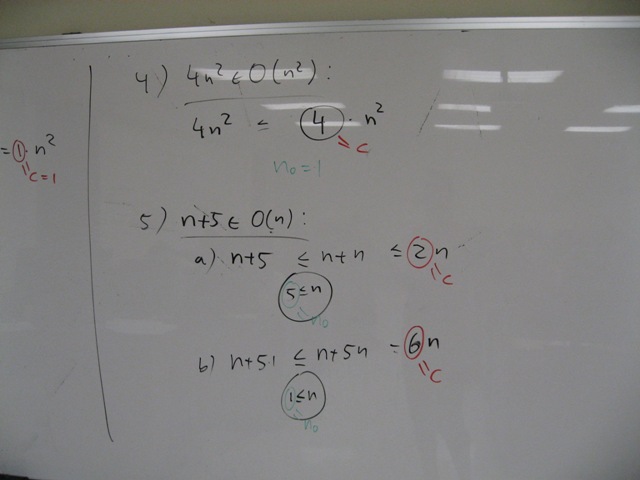 = 1 · n²
= c = 1
4) 4n² ∈ O(n²) :
4n² ≤ 4 · n²
= c
n₀ = 1
5) n+5 ∈ O(n) :
a) n+5 ≤ n+n ≤ 2n
= c
5 ≤ n
= n₀
b) n+5·1 ≤ n+5n = 6n
= c
1 ≤ n
= n₀